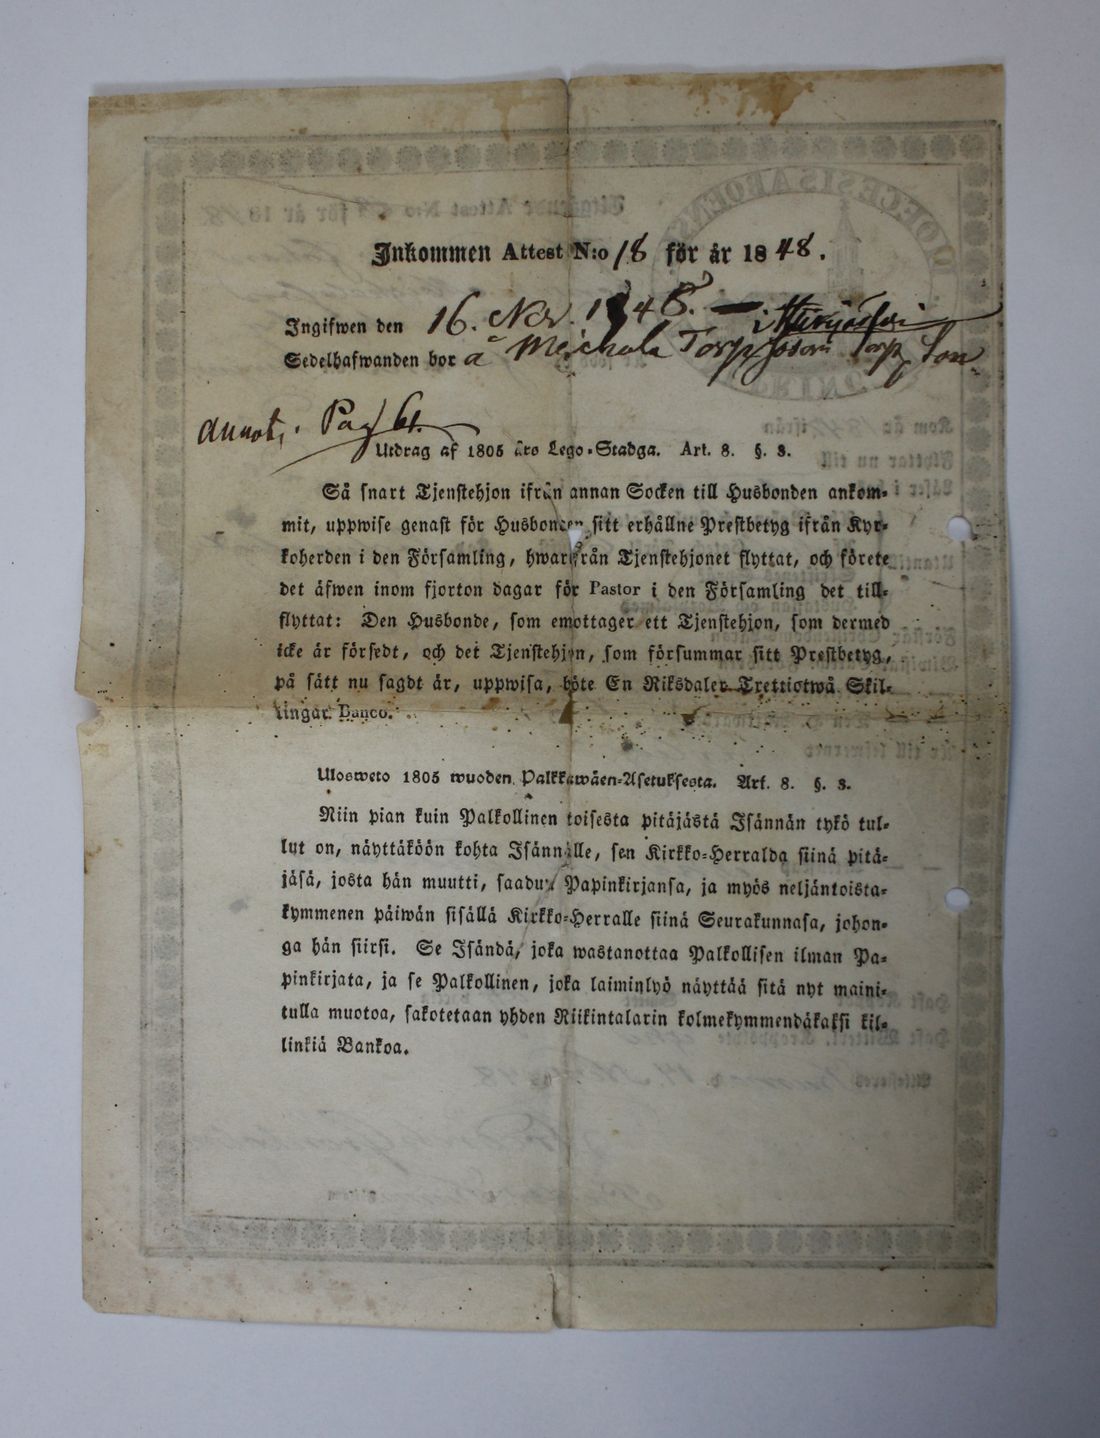 Inkommen Attest N:o 18 för år 1848.
Ingifwen den 16. Nov. 1848. — i
Sedelhafwanden bor å Meichala Torp Torp Son
Annot. Pag 61.
Utdrag af 1805 års Lego-Stadga. Art. 8. §. 3.
Så snart Tjenstehjon ifrån annan Socken till Husbonden ankom-
mit, uppwise genast för Husbonden sitt erhållne Prestbetyg ifrån Kyr-
koherden i den Församling, hwarifrån Tjenstehjonet flyttat, och förete
det äfwen inom fjorton dagar för Pastor i den Församling det till-
flyttat: Den Husbonde, som emottager ett Tjenstehjon, som dermed
icke är försedt, och det Tjenstehjon, som försummar sitt Prestbetyg,
på sätt nu sagdt är, uppwisa, böte En Riksdaler Trettiotwå Skil-
lingar Banco.
Ulosweto 1805 wuoden Palkkawäen-Asetuksesta. Art. 8. §. 3.
Niin pian kuin Palkollinen toisesta pitäjästä Isännän tykö tul-
lut on, näyttäköön kohta Isännälle, sen Kirkko-Herralda siinä pitä-
jäsä, josta hän muutti, saadun Papinkirjansa, ja myös neljäntoista-
kymmenen päiwän sisällä Kirkko-Herralle siinä Seurakunnasa, johon-
ga hän siirsi. Se Isändä, joka wastanottaa Palkollisen ilman Pa-
pinkirjata, ja se Palkollinen, joka laiminlyö näyttää sitä nyt maini-
tulla muotoa, sakotetaan yhden Riikintalarin kolmekymmendäkaksi kil-
linkiä Bankoa.